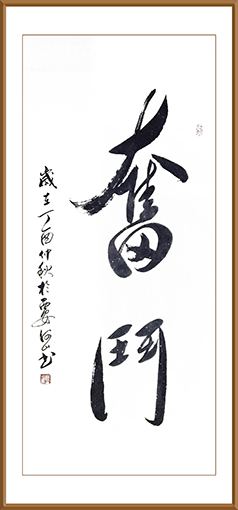 奮鬥
歲在丁酉仲秋於